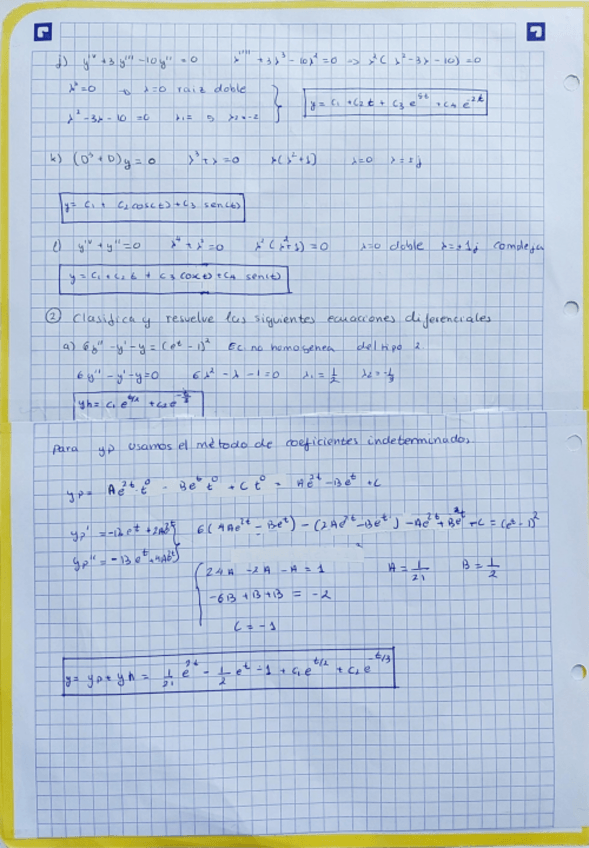 j) y'ᵛ + 3y''' - 10y'' = 0 λ'''' + 3λ³ - 10λ² = 0 -> λ²(λ² - 3λ - 10) = 0
λ² = 0 -> λ = 0 raiz doble
λ² - 3λ - 10 = 0 λ₁ = 5 λ₂ = -2 y = C₁ + C₂t + C₃e^5t + C₄e^2t
k) (D³ + D)y = 0 λ³ + λ = 0 λ(λ² + 1) λ = 0 λ = ±j
y = C₁ + C₂cos(t) + C₃ sen(t)
l) y'ᵛ + y'' = 0 λ⁴ + λ² = 0 λ²(λ² + 1) = 0 λ = 0 doble λ = ±1j compleja
y = C₁ + C₂t + C₃ cos(t) + C₄ sen(t)
② Clasifica y resuelve las siguientes ecuaciones diferenciales
a) 6y'' - y' - y = (e^t - 1)² Ec no homogenea del tipo 2
6y'' - y' - y = 0 6λ² - λ - 1 = 0 λ₁ = 1/2 λ₂ = -1/3
yh = C₁e^t/2 + C₂e^-t/3
Para yp usamos el método de coeficientes indeterminado,
yp = Ae^2t t⁰ - Be^t t⁰ + Ct⁰ = Ae^2t - Be^t + C
yp' = -Be^t + 2Ae^2t 6(4Ae^2t - Be^t) - (2Ae^2t - Be^t) - Ae^2t + Be^t + C = (e^t - 1)²
yp'' = -Be^t + 4Ae^2t
24A - 2A - A = 1 A = 1/21 B = 1/2
-6B + B + B = -2
C = -1
y = yp + yh = 1/21 e^2t - 1/2 e^t - 1 + C₁e^t/2 + C₂e^-t/3